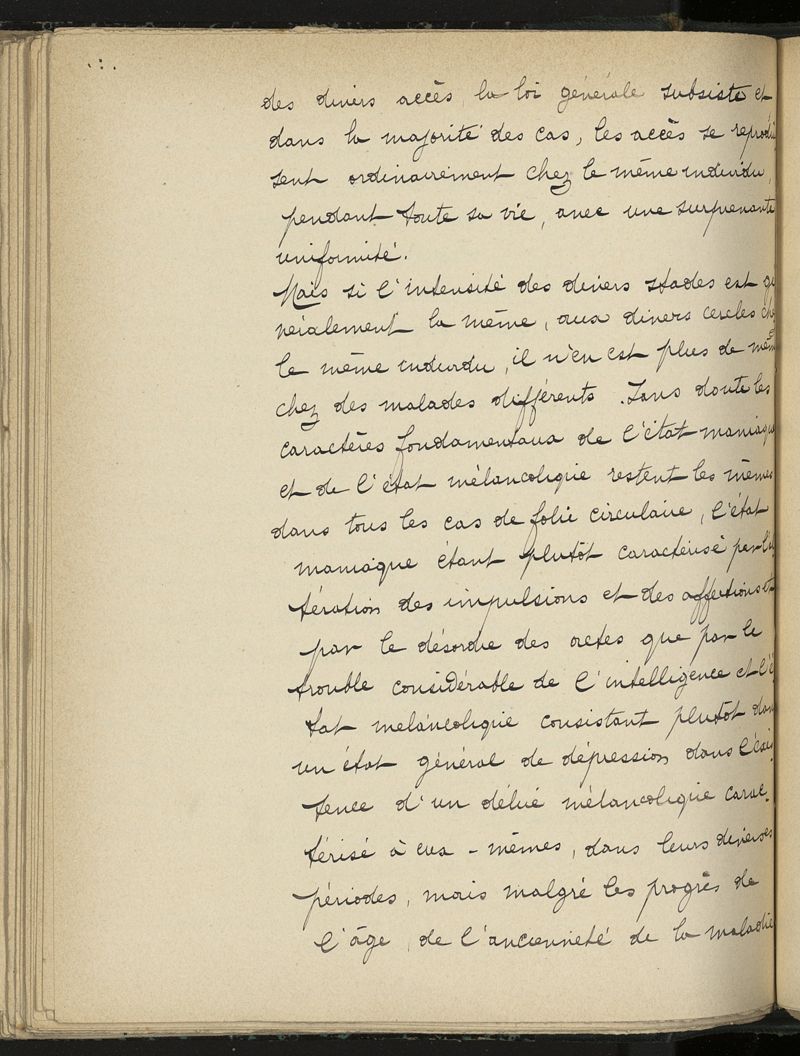 des divers accès, la loi générale subsiste et
dans la majorité des cas, les accès se reprodui
sent ordinairement chez le même individu,
pendant toute sa vie, avec une surprenante
uniformité.
Mais si l'intensité des divers stades est gé
néralement la même, aux divers cercles chez
le même individu, il n'en est plus de même
chez des malades différents. Sans doute les
caractères fondamentaux de l'état maniaque
et de l'état mélancolique restent les mêmes
dans tous les cas de folie circulaire, l'état
maniaque étant plutôt caractérisé par l'al
tération des impulsions et des affections et
par le désordre des actes que par le
trouble considérable de l'intelligence et l'é
tat mélancolique consistant plutôt dans
un état général de dépression dans l'exis
tence d'un délire mélancolique carac-
térisé à eux-mêmes, dans leurs diverses
périodes, mais malgré les progrès de
l'âge, de l'ancienneté de la maladie